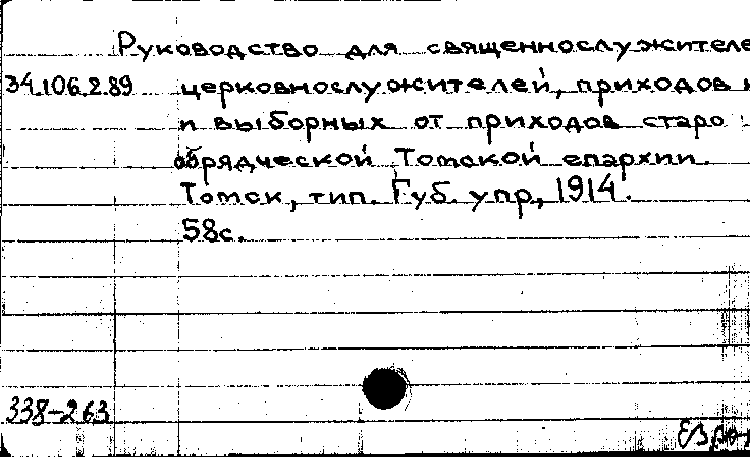 Руководство для священнослужителе
34.106.2.89 церковнослужителей, приходов и
и выборных от приходов старо
обрядческой Томской епархии.
Томск, тип. Губ. упр, 1914.
58с.
338-263